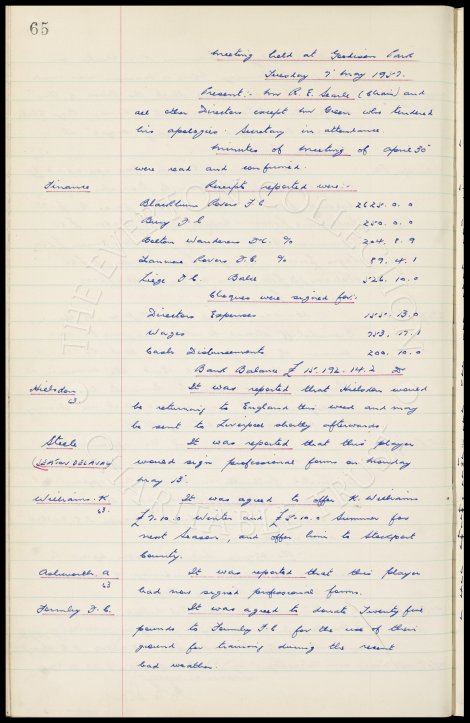 65
Meeting held at Goodison Park
Tuesday 7 May 1957.
Present:- Mr R. E. Searle (Chair) and
all other Directors except Mr Green who tendered
his apologies. Secretary in attendance.
Minutes of Meeting of April 30
were read and confirmed.
Finance Receipts reported were:-
Blackburn Rovers F.C. 2628. 0. 0
Bury F.C. 250. 0. 0
Bolton Wanderers F.C. % 204. 8. 9
Tranmere Rovers F.C. % 89. 4. 1
Liege F.C. Balce 526. 10. 0
Cheques were signed for:-
Directors Expenses 155. 13. 0
Wages 753. 17. 1
Cash Disbursements 200. 10. 0
Bank Balance £15.192.14.2
It was reported that would
63.
be returning to England this week and may
be sent to Liverpool shortly afterwards.
Steele It was reported that this player
(SEATON DELAVAL) would sign professional forms on Monday
May 13.
Williams. K. It was agreed to offer K. Williams
63. £7.10.0 Winter and £5.10.0 Summer for
next Season, and offer him to Stockport
County.
Ashworth. A It was reported that this player
63 had now signed professional forms.
Formby F.C. It was agreed to donate Twenty five
pounds to Formby F.C for the use of their
ground for training during the recent
bad weather.
THE EVERTON COLLECTION
CHARITABLE TRUST